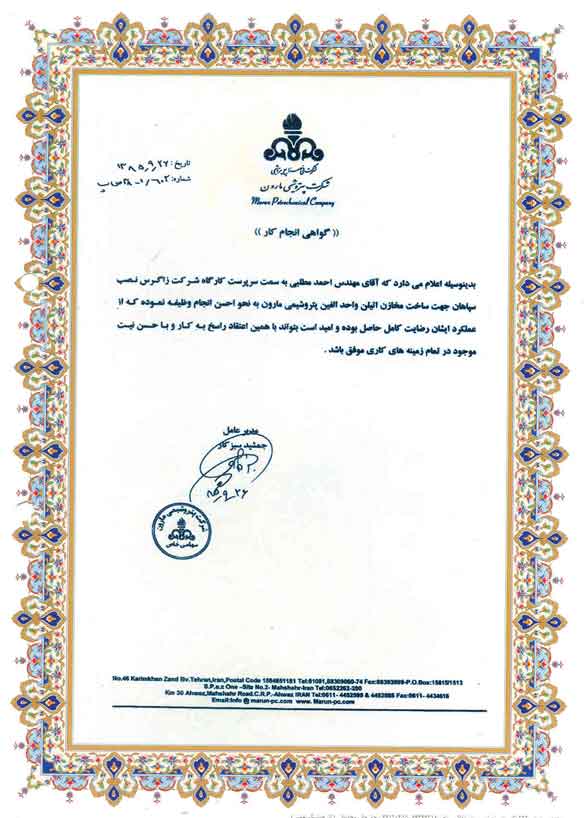 تاریخ: ۱۳۸۵,۹,۲۷
شماره:
شرکت پتروشیمی مارون
Marun Petrochemical Company
(( گواهی انجام کار ))
بدینوسیله اعلام می دارد که آقای مهندس احمد مطلبی به سمت سرپرست کارگاه شرکت زاگرس نصب
سپاهان جهت ساخت مخازن اتیلن واحد الفین پتروشیمی مارون به نحو احسن انجام وظیفه نموده که از
عملکرد ایشان رضایت کامل حاصل بوده و امید است بتواند با همین اعتقاد راسخ به کار و با حسن نیت
موجود در تمام زمینه های کاری موفق باشد .
مدیر عامل
جمشید سبزکار
۸۵,۹,۲۶
شرکت پتروشیمی مارون
سهامی خاص
No.46 Karimkhan Zand Bv.Tehran,Iran,Postal Code 1584851181 Tel:81091,88309060-74 Fax:88393999-P.O.Box:15815/1513
S.P.e.z One –Site No.2- Mahshahr-Iran Tel:0652262-200
Km 30 Ahwaz,Mahshahr Road.C.R.P.-Ahwaz IRAN Tel:0611- 4452599 & 4452885 Fax:0611- 4434616
Email:Info @ marun-pc.com www. Marun-pc.com